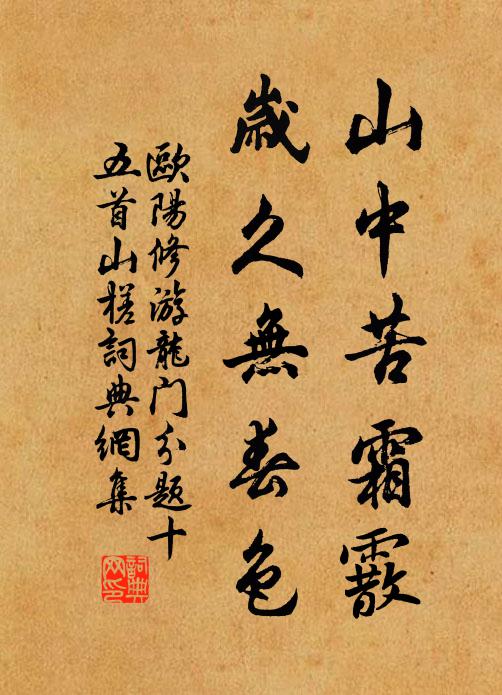 山中苦霜霰
歲久無春色
歐陽修游龍门分题十
五首山槎詞典網集
詞典网印